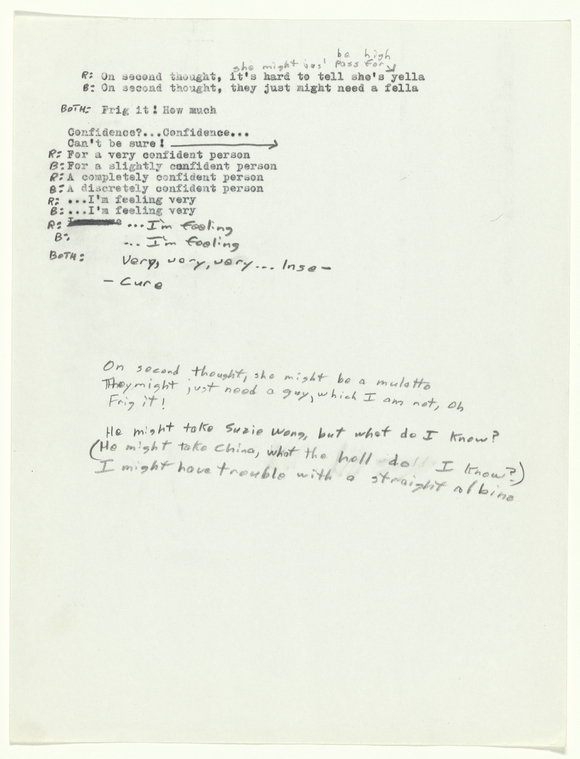 be high
she might pass for
R: On second thought, it's hard to tell she's yella
B: On second thought, they just might need a fella
BOTH: Frig it! How much
Confidence?...Confidence...
Can't be sure!
R: For a very confident person
B: For a slightly confident person
R: A completely confident person
B: A discretely confident person
R: ...I'm feeling very
B: ...I'm feeling very
R: ...I'm feeling
B: ...I'm feeling
BOTH: Very, very, very... Inse-
- Cure
On second thought, she might be a mulatto
They might just need a guy, which I am not, oh
Frig it!
He might take Suzie Wong, but what do I know?
(He might take China, what the hell do I know?)
I might have trouble with a straight albino